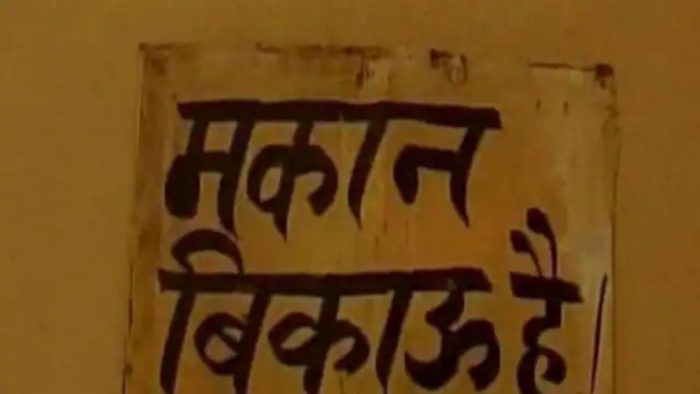 मकान
बिकाऊ है।